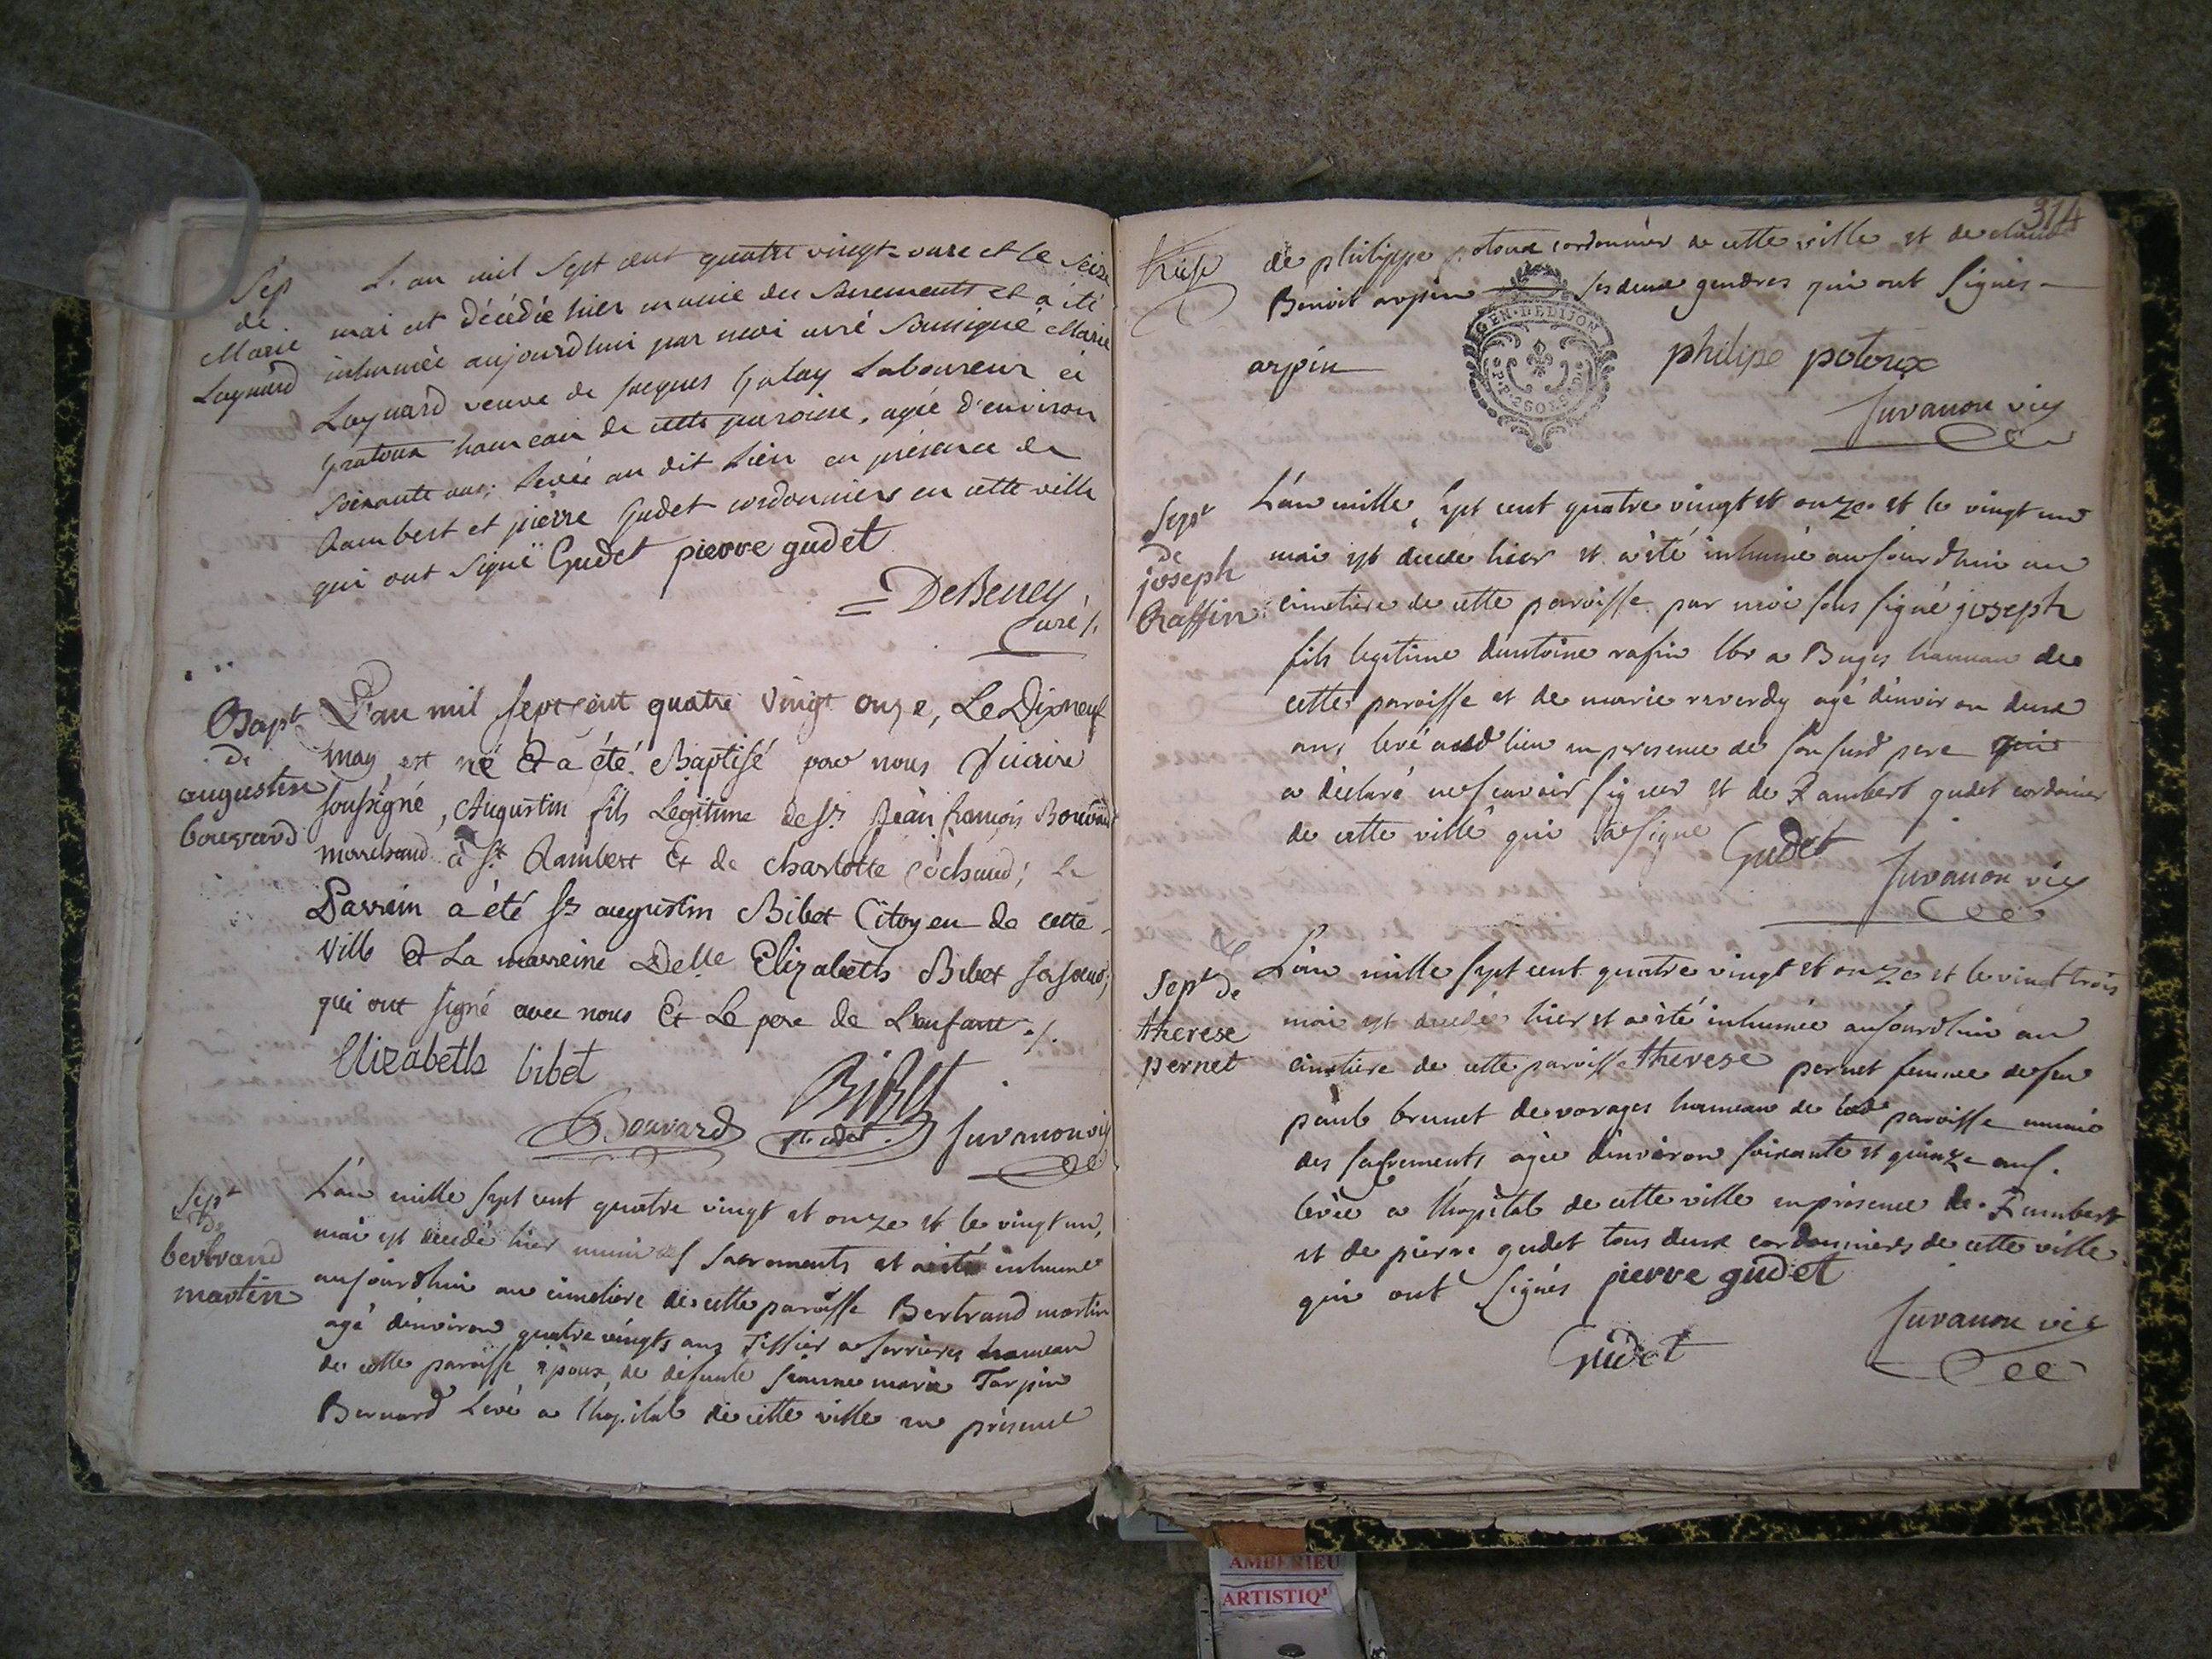 Sep
de
Marie
Laguard
L'an mil sept cent quatre vingt-onze et le seize
mai est décédée hier munie des sacrements et a été
inhumée aujourdhui par moi curé soussigné Marie
Laguard veuve de jacques Galay Laboureur à
gratoux hameau de cette paroisse, agée d'environ
soixante ans; levée au dit lieu en présence de
Rambert et pierre Gudet cordonniers en cette ville
qui ont signé Gudet pierre gudet
= DeBeney
Curé /.
Bapt
de
augustin
bouvard
L'an mil sept cent quatre vingt onze, Le Dixneuf
may est né Et a été Baptisé par nous vicaire
soussigné, Augustin fils Legitime de Sr Jean françois Bouvard
marchand à St Rambert Et de charlotte cochaud; Le
Parrain a été Sr augustin Bibet Citoyen de cette
Ville Et La marreine Delle Elizabeth Bibet sa soeur;
qui ont signé avec nous Et Le pere de L'enfant ./.
Elizabeth bibet
BiBet
Bouvard
Juvanon vic
Sept
de
bertrand
martin
L'an mille sept cent quatre vingt et onze et le vingt un,
mai est decedé hier muni des sacrements et a été inhumé
aujourdhui au cimetiere de cette paroisse Bertrand martin
agé d'environ quatre vingts ans Tissier a serrieres hameau
de cette paroisse epoux de defunte jeanne marie Tarpin
Bernard Levé a l'hopital de cette ville en présence
314
de philippe potoux cordonnier de cette ville et de claude
Benoit arpin ses deux gendres qui ont signés
GEN. DE DIJON
arpin
philipe potoux
Juvanon vic
Sept
de
joseph
Raffin
L'an mille sept cent quatre vingt et onze et le vingt un
mai est decedé hier et a été inhumé aujourdhui au
cimetiere de cette paroisse par moi sous signé joseph
fils legitime d'antoine rafin lbr a Buges hameau de
cette paroisse et de marie reverdy agé d'environ deux
ans levé aud lieu en presence de son susd pere qui
a déclaré ne scavoir signer et de Rambert gudet cordonnier
de cette ville qui a signé Gudet
Juvanon vic
Sept de
therese
pernet
L'an mille sept cent quatre vingt et onze et le vingt trois
mai est decedée hier et a été inhumée aujourdhui au
cimetiere de cette paroisse therese pernet femme de feu
paul brunet de vorages hameau de lad paroisse munie
des sacrements agée d'environ soixante et quinze ans.
levée a l'hopital de cette ville en présence de Rambert
et de pierre gudet tous deux cordonniers de cette ville
qui ont signés pierre gudet
Juvanon vic
Gudet
AMBERIEU
ARTISTIQ'